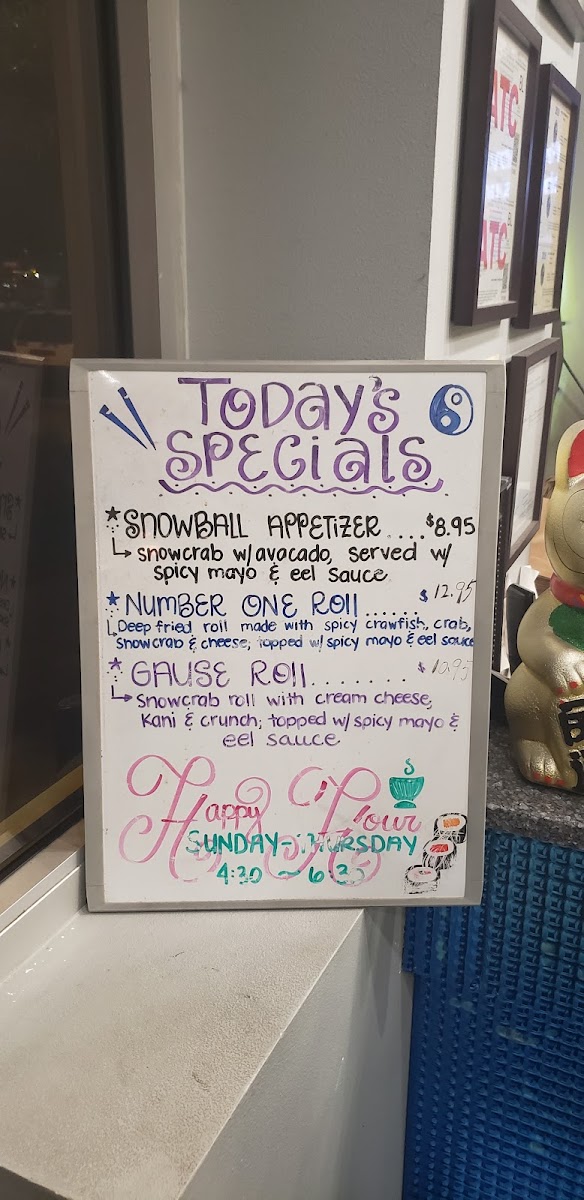 ATC
ATC
TODay's
SPECials
* SNOWBALL APPETIZER ....$8.95
snowcrab w/avocado, served w/
spicy mayo & eel sauce
* NUMBER ONE ROll...... $12.95
Deep fried roll made with spicy crawfish, crab,
Snowcrab & cheese; topped w/ spicy mayo & eel sauce
* GAUSE ROll........ $10.95
Snowcrab roll with cream cheese,
Kani & crunch; topped w/ spicy mayo &
eel sauce
Happy Hour
SUNDAY-THURSDAY
4:30 ~ 6:30